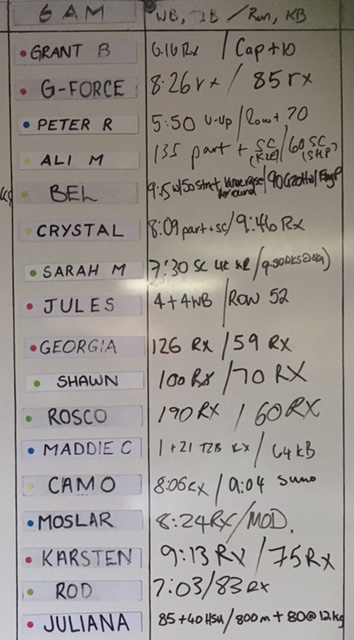 6 AM WB, T2B / Run, KB
GRANT B 6:16 Rx / Cap + 10
G-FORCE 8:26 rx / 85 rx
PETER R 5:50 / Row + 70
ALI M 135 part + SC / 60 SC
BEL
CRYSTAL 8:09 part + sc / 9:46 Rx
SARAH M 7:30 SC
JULES 4 + 4 WB / ROW 52
GEORGIA 126 RX / 59 RX
SHAWN 100 RX / 70 RX
ROSCO 190 RX / 60 RX
MADDIE C 1 + 21 T2B RX / 64 KB
CAMO 8:06 RX / 9:04 sumo
MOSLAR 8:24 RX / MOD.
KARSTEN 9:13 RX / 75 RX
ROD 7:03 / 83 RX
JULIANA 85 + 40 HSU / 800 m + 80 @ 12 kg